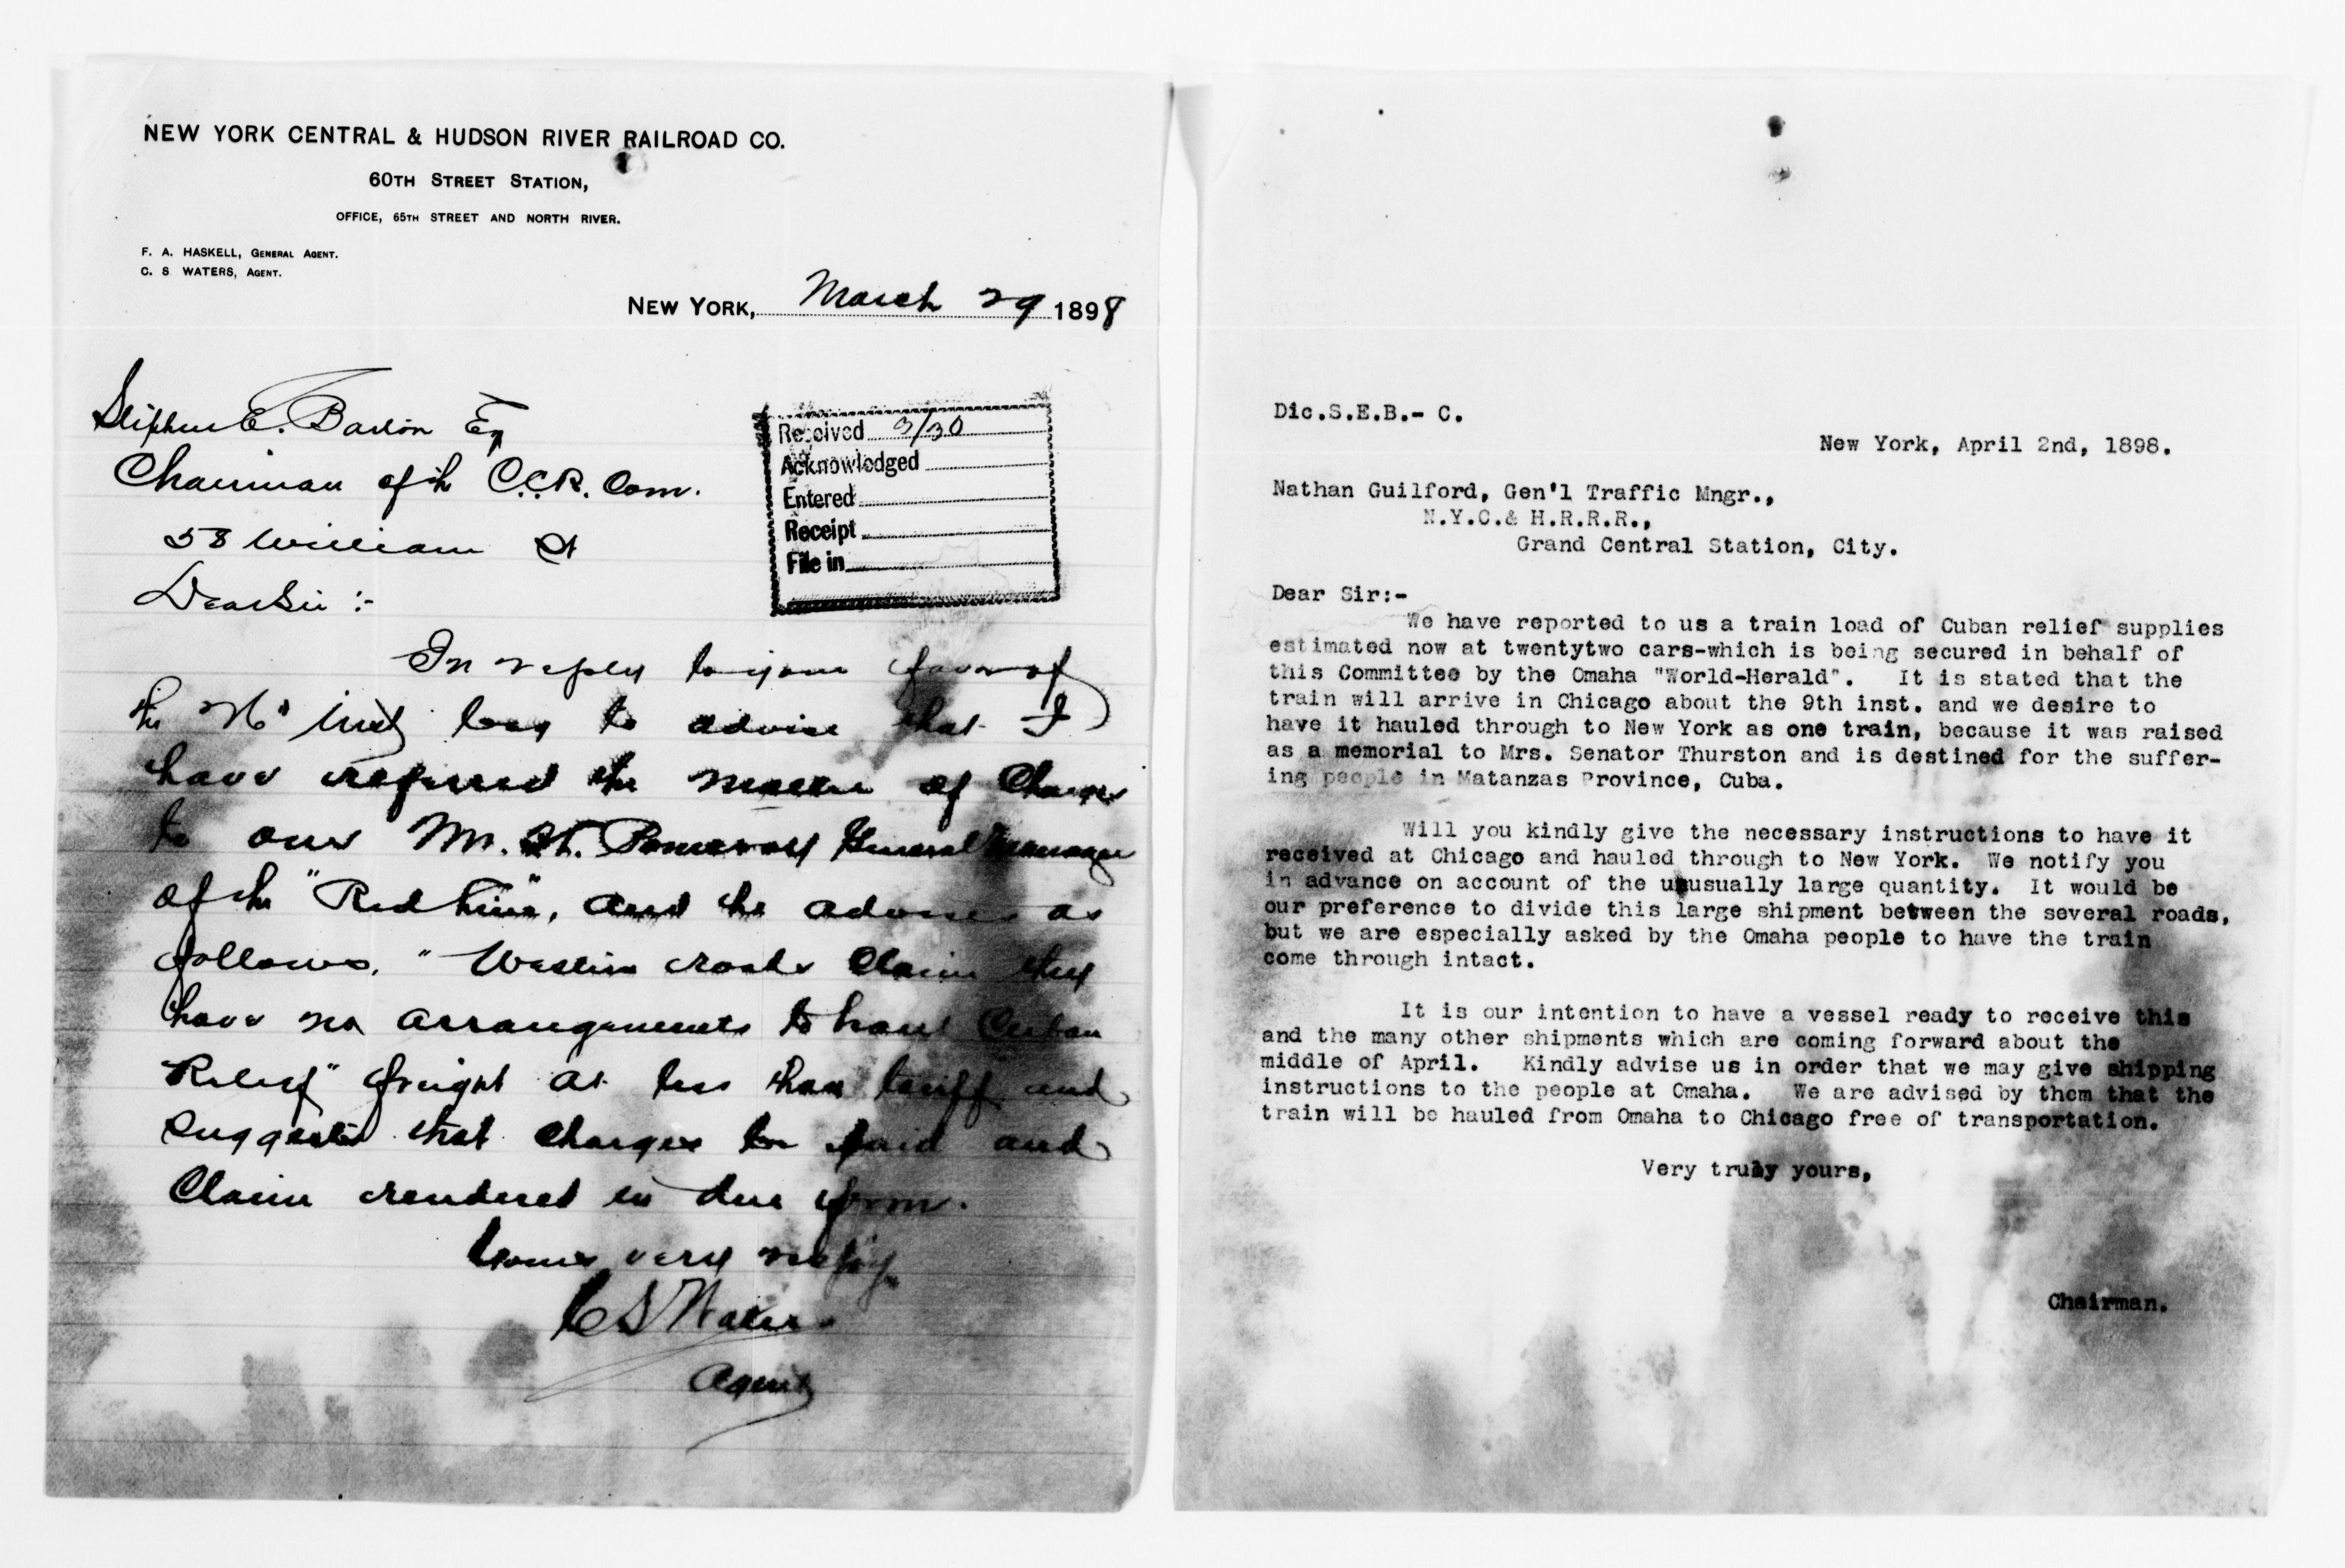 NEW YORK CENTRAL & HUDSON RIVER RAILROAD CO.
60TH STREET STATION,
OFFICE, 65TH STREET AND NORTH RIVER.
F. A. HASKELL, GENERAL AGENT.
C. S WATERS, AGENT.
NEW YORK, March 29 1898
Stephen E. Barton Esq
Chairman of the C.C.R. Com.
58 William St
Dear Sir :-
Received 3/30
Acknowledged
Entered
Receipt
File in
In reply to your favor of
the inst beg to advise that I
have referred the matter of Charges
to our Mr. Pomeroy General Manager
of the "Red Line", and he advises as
follows. "Western roads claim they
have no arrangements to haul Cuban
Relief" freight at less than tariff and
suggests that charges be paid and
Claim rendered in due form.
Yours very resp'y
C S Waters
Agent
Dic.S.E.B.- C.
New York, April 2nd, 1898.
Nathan Guilford, Gen'l Traffic Mngr.,
N.Y.C.& H.R.R.R.,
Grand Central Station, City.
Dear Sir:-
We have reported to us a train load of Cuban relief supplies
estimated now at twentytwo cars-which is being secured in behalf of
this Committee by the Omaha "World-Herald". It is stated that the
train will arrive in Chicago about the 9th inst. and we desire to
have it hauled through to New York as one train, because it was raised
as a memorial to Mrs. Senator Thurston and is destined for the suffer-
ing people in Matanzas Province, Cuba.
Will you kindly give the necessary instructions to have it
received at Chicago and hauled through to New York. We notify you
in advance on account of the unusually large quantity. It would be
our preference to divide this large shipment between the several roads,
but we are especially asked by the Omaha people to have the train
come through intact.
It is our intention to have a vessel ready to receive this
and the many other shipments which are coming forward about the
middle of April. Kindly advise us in order that we may give shipping
instructions to the people at Omaha. We are advised by them that the
train will be hauled from Omaha to Chicago free of transportation.
Very truly yours,
Chairman.